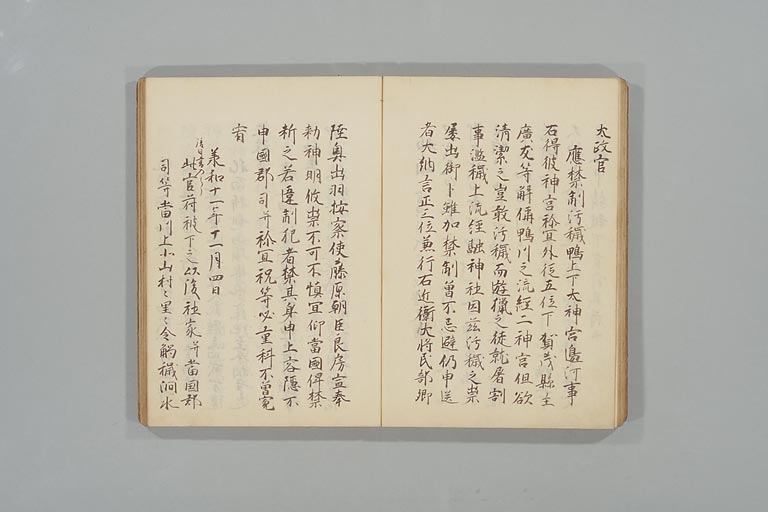 太政官
應禁制汚穢鴨上下大神宮邊河事
右得彼神宮祢宜外従五位下賀茂縣主
廣友等解偁鴨川之流経二神宮但欲
清潔之豈敢汚穢而遊獵之徒就屠割
事濫穢上流経融神社因茲汚穢之祟
屡出御卜雖加禁制曽不忌避仍申送
者大納言正三位兼行右近衛大将民部卿
陸奥出羽按察使藤原朝臣良房宣奉
勅神明攸祟不可不慎宜仰當國俾禁
斬之若違制犯者禁其身申上容隠不
申國郡司并祢宜祝等必重科不曽寛
宥
承和十一年十一月四日
此官符被下之以後社家并當国郡
司等當川上小山村々里々令觸穢澗水